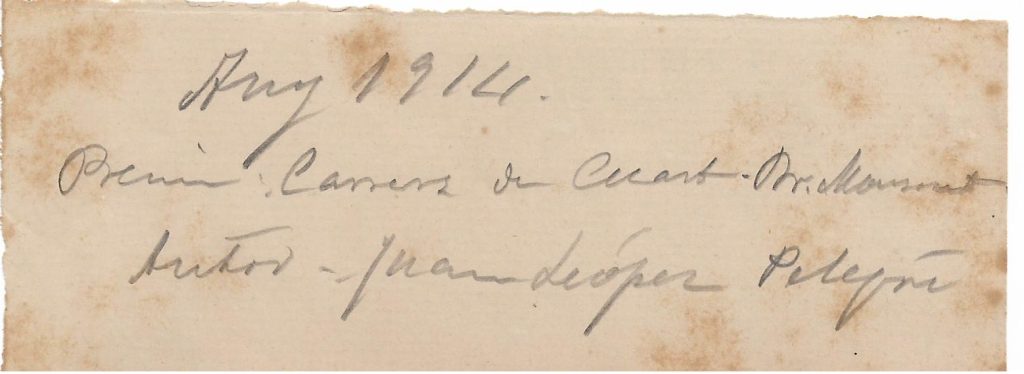 Any 1914.
Premi. Carrera de Cuart - Dr. Monserrat
Autor - Juan López Pelegrí